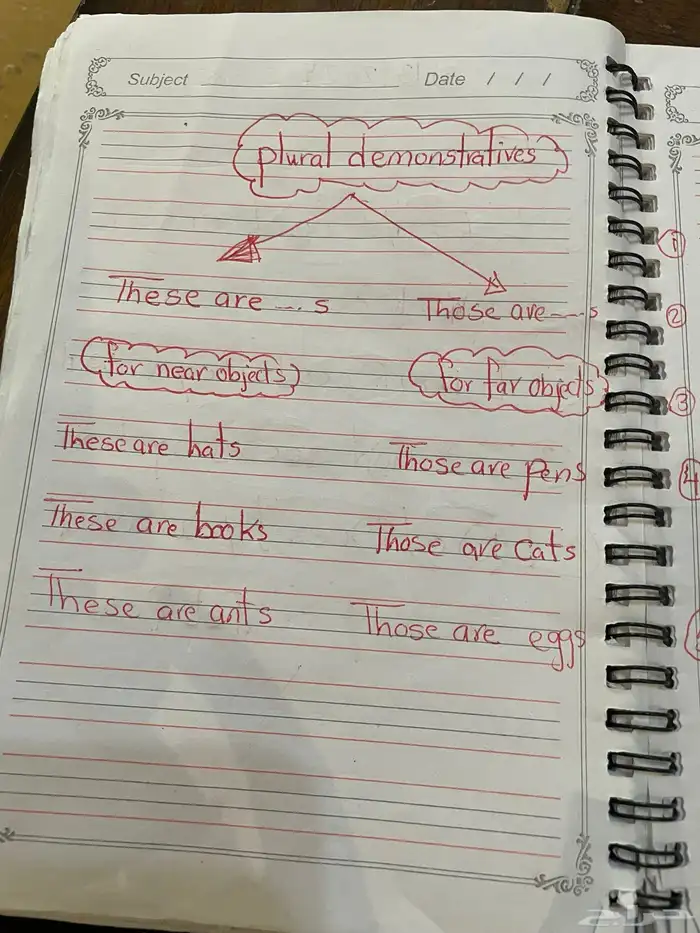 Subject Date / / /
plural demonstratives
These are ....s Those are ....s
for near objects for far objects
These are hats Those are pens
These are books Those are cats
These are ants Those are eggs
1
2
3
4
حراج